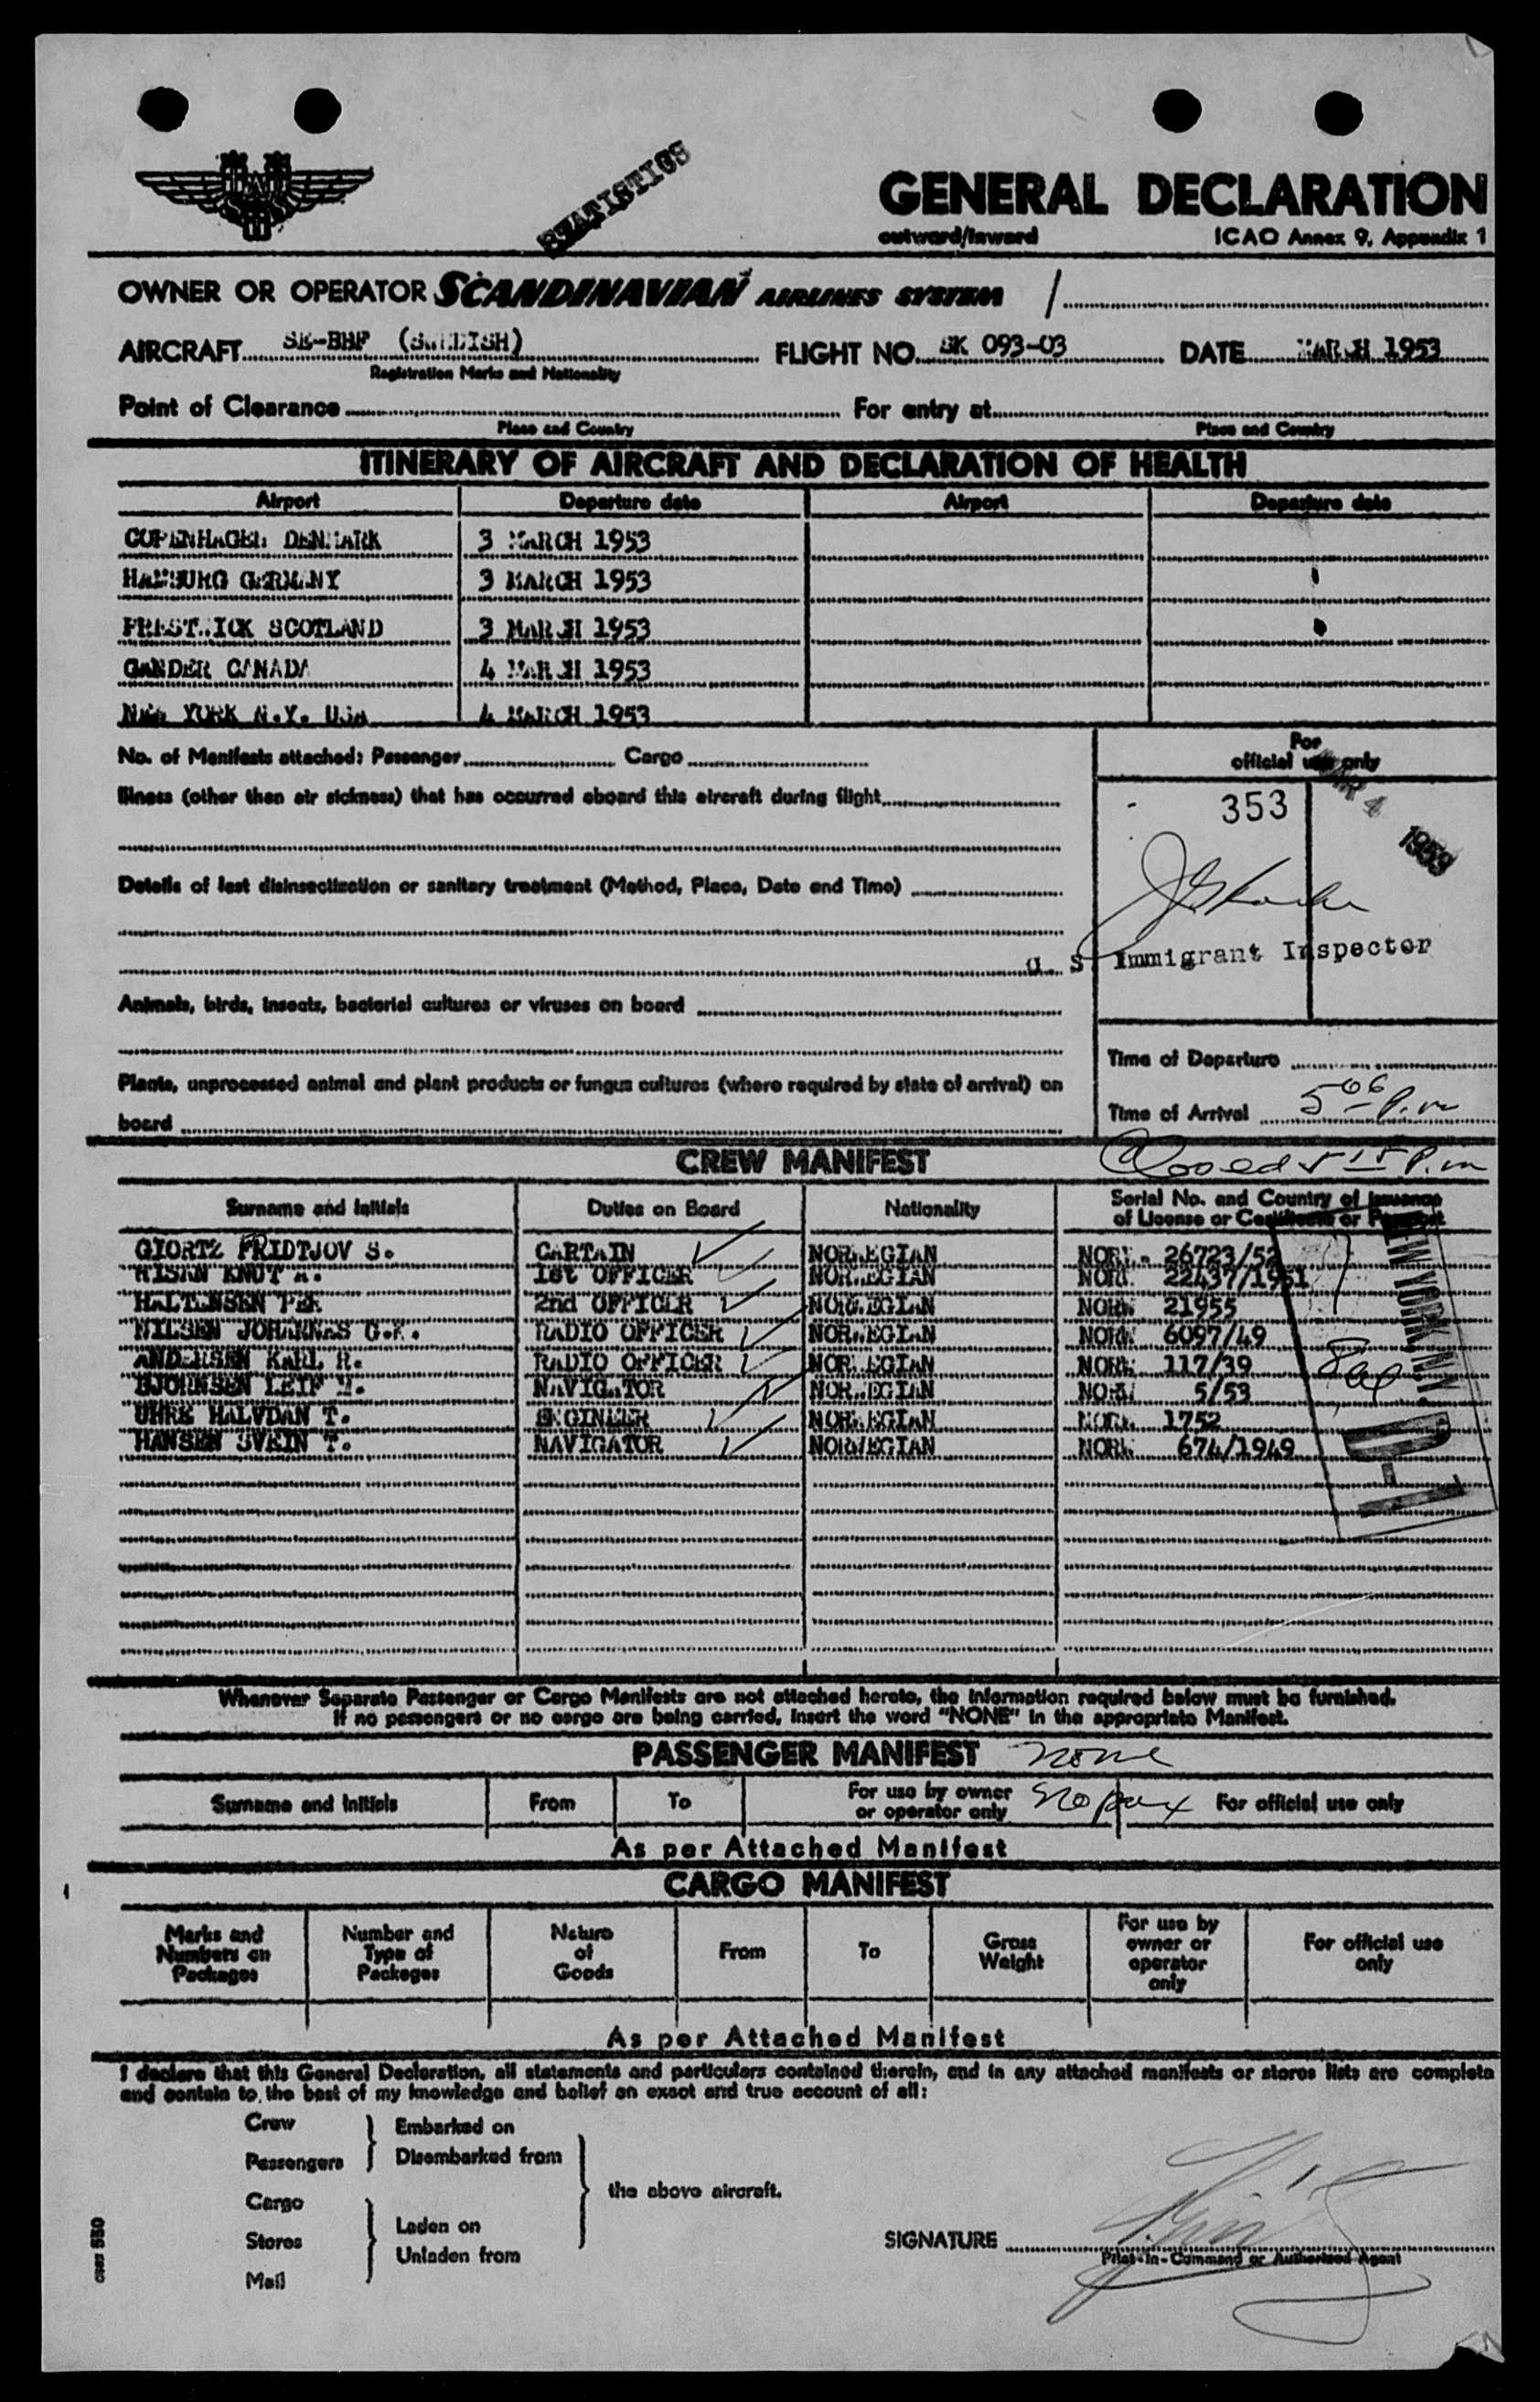 STATISTICS
GENERAL DECLARATION
outward/inward ICAO Annex 9, Appendix 1
OWNER OR OPERATOR SCANDINAVIAN AIRLINES SYSTEM /
AIRCRAFT SE-BHF (SWEDISH) FLIGHT NO. SK 093-03 DATE MARCH 1953
Registration Marks and Nationality
Point of Clearance For entry at
Place and Country Place and Country
ITINERARY OF AIRCRAFT AND DECLARATION OF HEALTH
Airport Departure date Airport Departure date
COPENHAGEN DENMARK 3 MARCH 1953
HAMBURG GERMANY 3 MARCH 1953
PRESTWICK SCOTLAND 3 MARCH 1953
GANDER CANADA 4 MARCH 1953
NEW YORK N.Y. USA 4 MARCH 1953
No. of Manifests attached: Passenger Cargo
For official use only
Illness (other than air sickness) that has occurred aboard this aircraft during flight
353
MAR 4 1953
Details of last disinsectization or sanitary treatment (Method, Place, Date and Time)
U. S. Immigrant Inspector
Animals, birds, insects, bacterial cultures or viruses on board
Time of Departure
Plants, unprocessed animal and plant products or fungus cultures (where required by state of arrival) on
board
Time of Arrival 5 06 P.m
CREW MANIFEST Closed 5 15 P.m
Surname and Initials Duties on Board Nationality Serial No. and Country of Issuance of License or Certificate or Passport
GIORTZ FRIDTJOV S. CAPTAIN NORWEGIAN NORW. 26723/52
WISAN KNUT A. 1st OFFICER NORWEGIAN NORW. 22437/1951
HALTENSEN PER 2nd OFFICER NORWEGIAN NORW 21955
NILSEN JOHANNES G.F. RADIO OFFICER NORWEGIAN NORW. 6097/49
ANDERSEN KARL R. RADIO OFFICER NORWEGIAN NORW 117/39
BJORNSEN LEIF M. NAVIGATOR NORWEGIAN NORW 5/53
UHRE HALVDAN T. ENGINEER NORWEGIAN NORW. 1752
HANSEN SVEIN T. NAVIGATOR NORWEGIAN NORW 674/1949
NEW YORK, N.Y.
D-1
Whenever Separate Passenger or Cargo Manifests are not attached hereto, the information required below must be furnished.
If no passengers or no cargo are being carried, insert the word "NONE" in the appropriate Manifest.
PASSENGER MANIFEST none
Surname and Initials From To For use by owner or operator only No pax For official use only
As per Attached Manifest
CARGO MANIFEST
Marks and Numbers on Packages Number and Type of Packages Nature of Goods From To Gross Weight For use by owner or operator only For official use only
As per Attached Manifest
I declare that this General Declaration, all statements and particulars contained therein, and in any attached manifests or stores lists are complete
and contain to the best of my knowledge and belief an exact and true account of all:
Crew Embarked on
Passengers Disembarked from
the above aircraft.
Cargo
Laden on
Stores
Unladen from
Mail
SIGNATURE
Pilot-in-Command or Authorised Agent